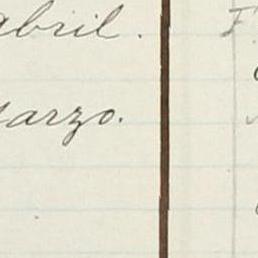 abril.
Marzo.
F